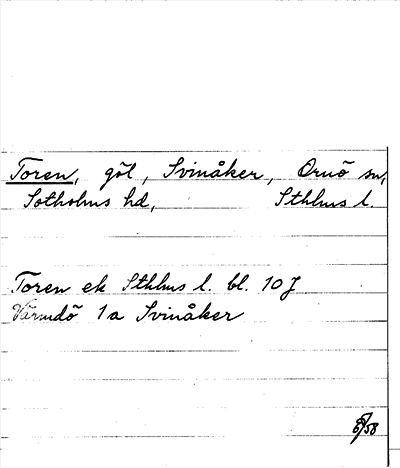 Toren, göl, Svinåker, Ornö sn,
Sotholms hd, Sthlms l.
Toren ek Sthlms l. bl. 10 J
Värmdö 1a Svinåker
/58